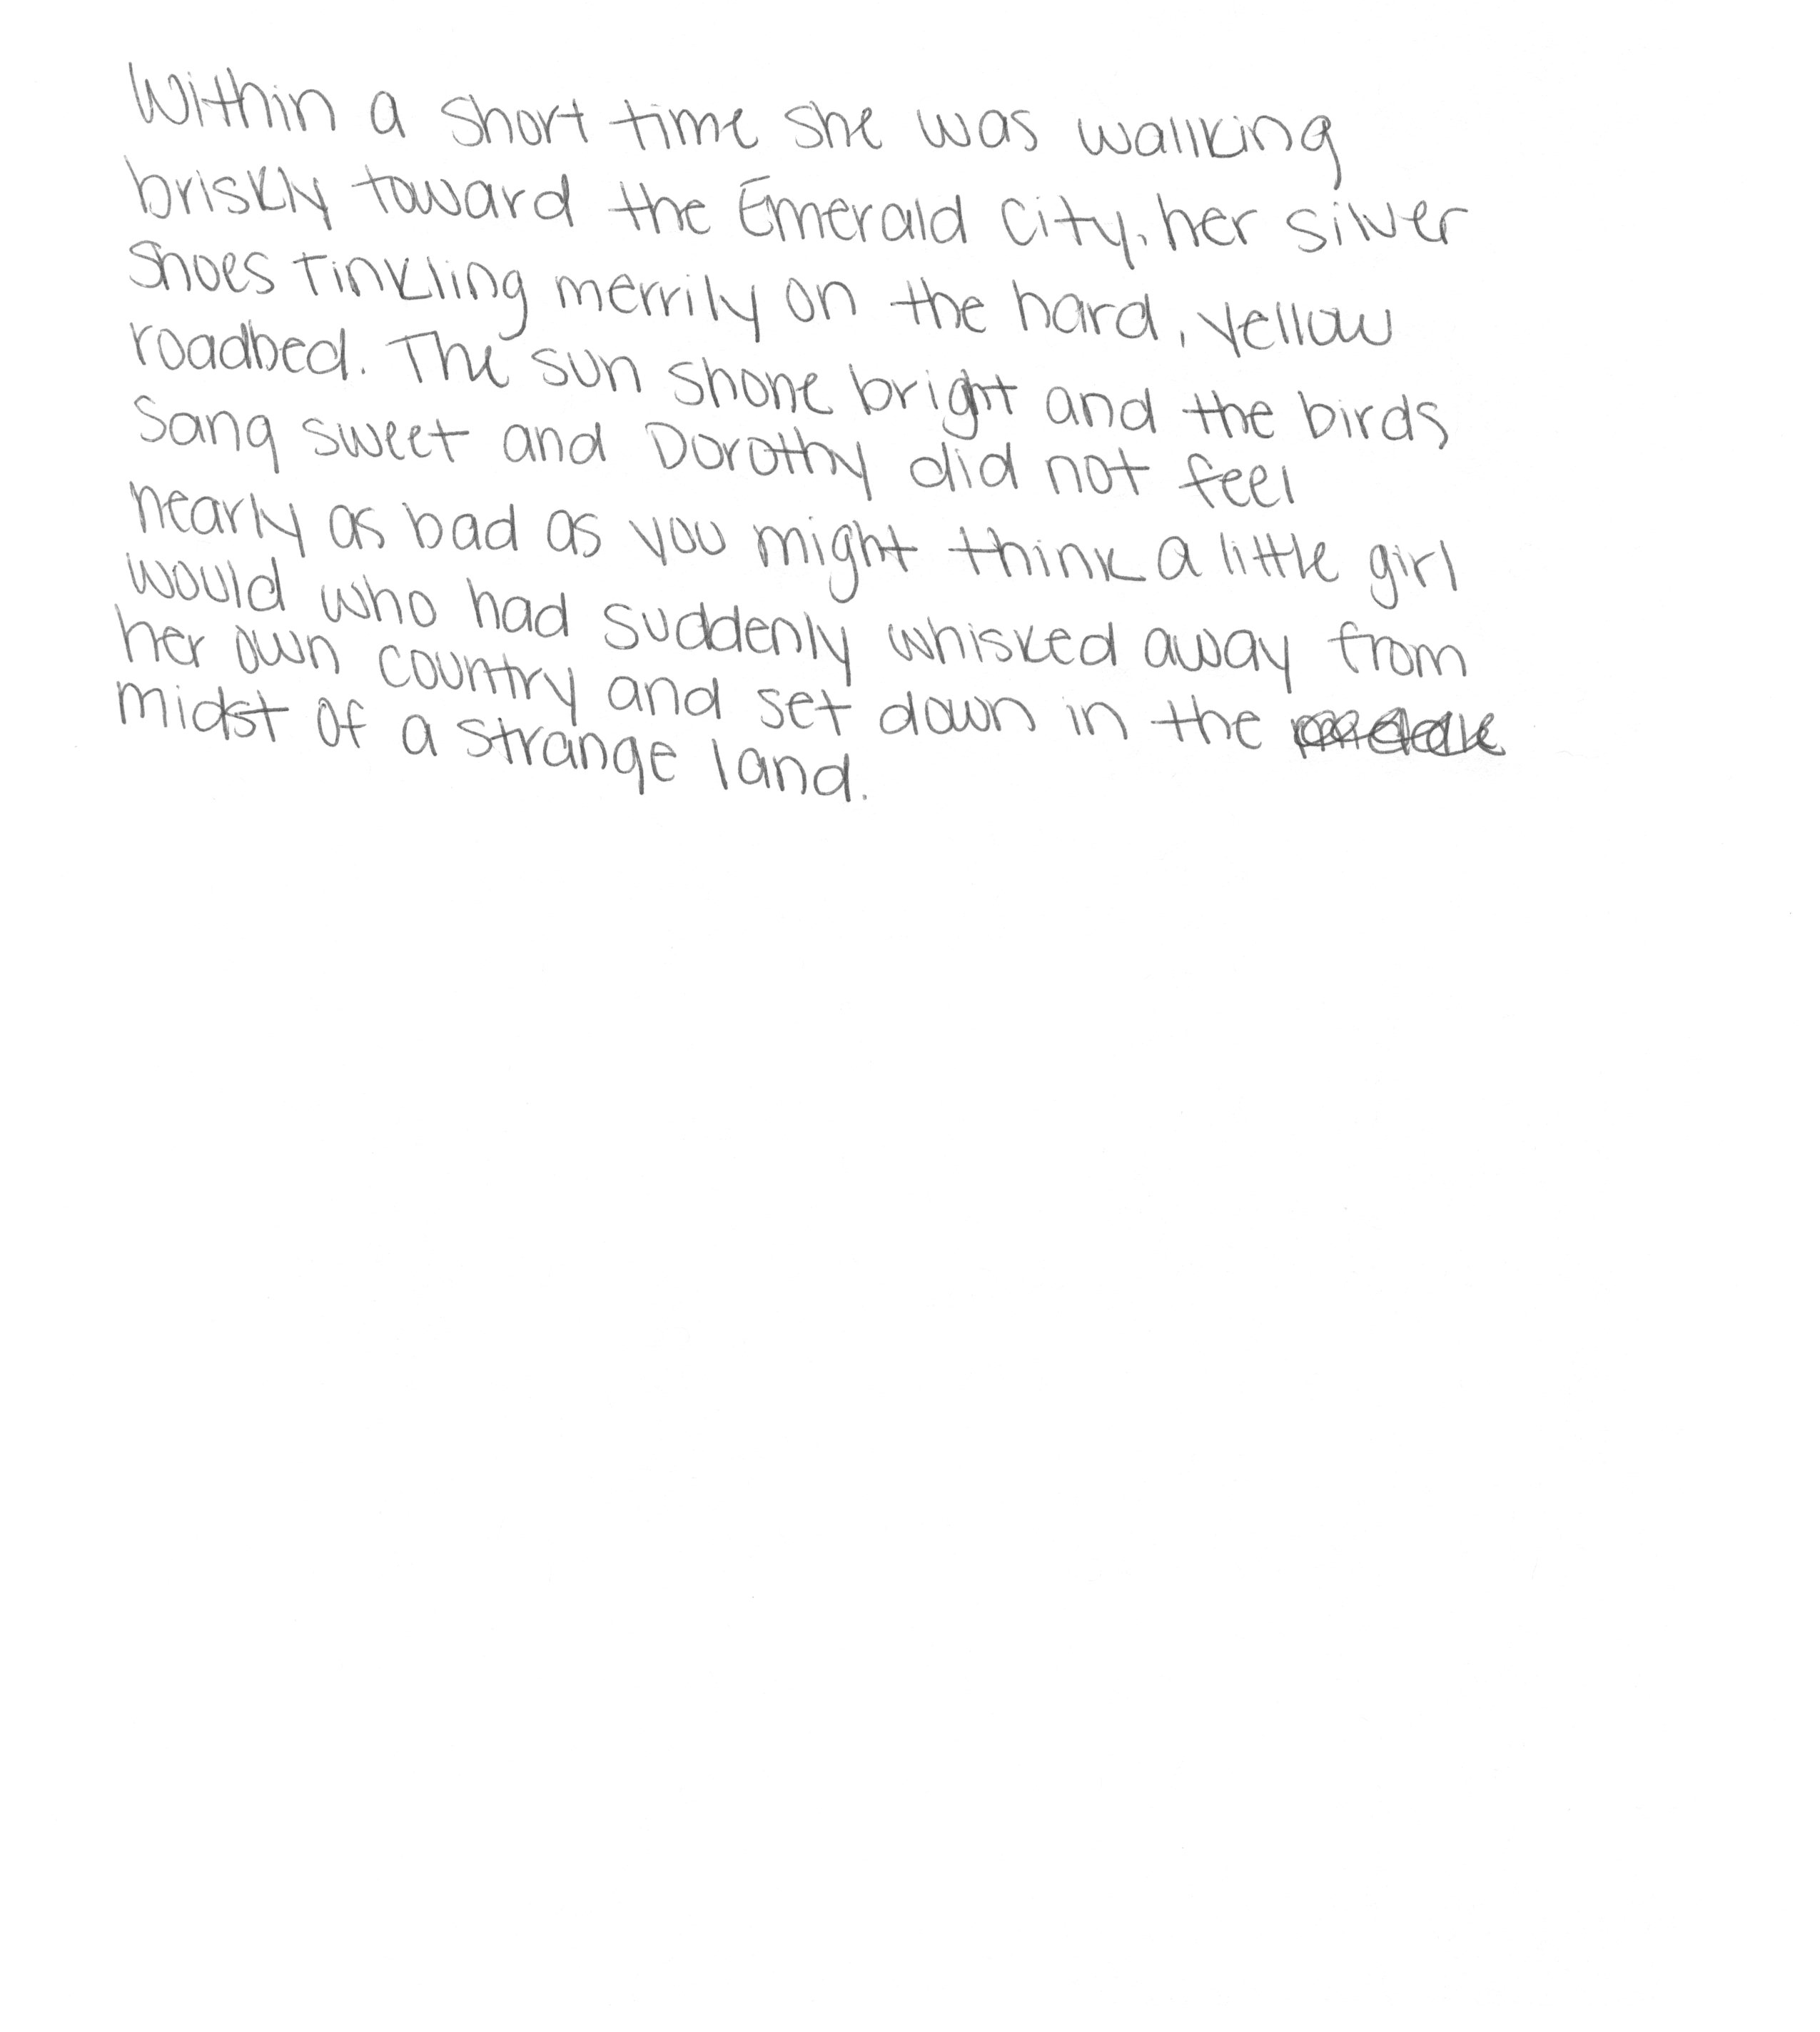 Within a short time she was wallking
briskly toward the Emerald City, her silver
shoes tinkling merrily on the hard, yellow
roadbed. The sun shone bright and the birds
sang sweet and Dorothy did not feel
nearly as bad as you might think a little girl
would who had suddenly whisked away from
her own country and set down in the
midst of a strange land.